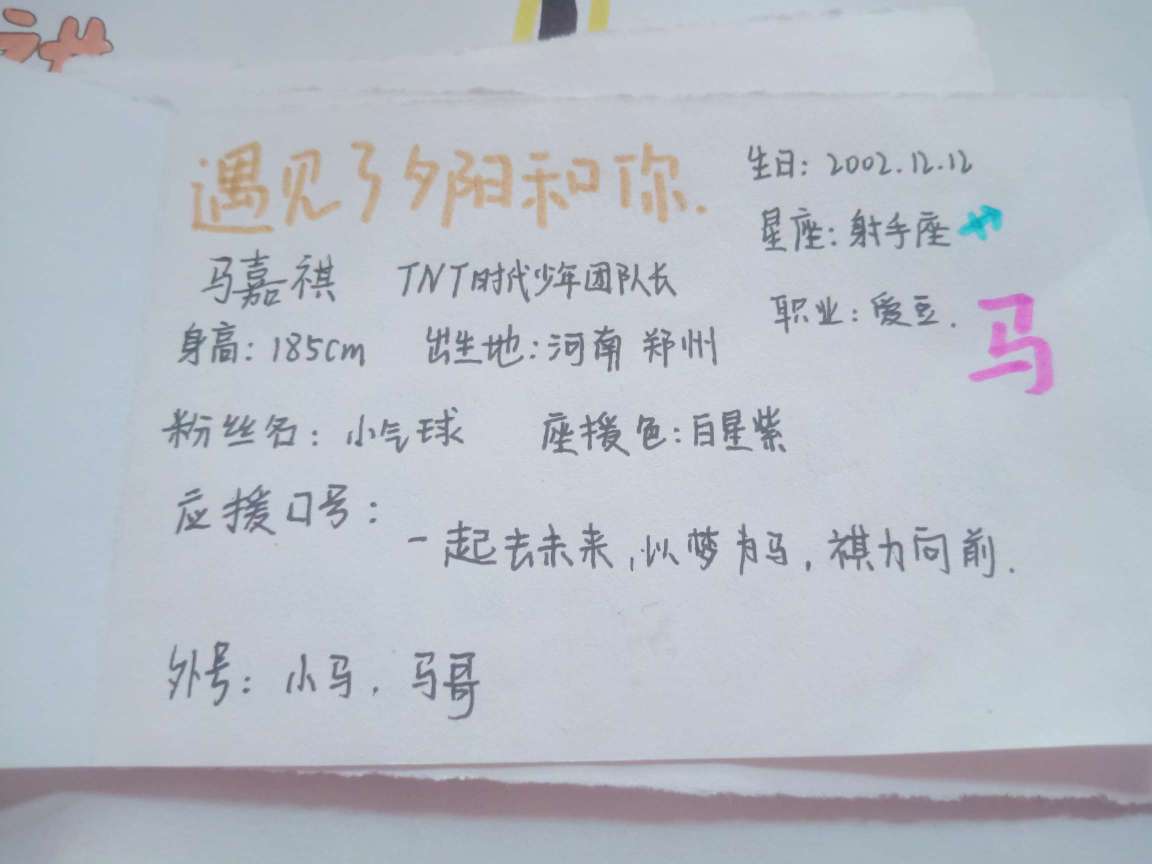 遇见了夕阳和你.
生日: 2002.12.12
星座: 射手座
马嘉祺 TNT时代少年团队长
职业: 爱豆.
马
身高: 185cm 出生地: 河南 郑州
粉丝名: 小气球 应援色: 白星紫
应援口号:
一起去未来,以梦为马,祺力向前.
外号: 小马, 马哥